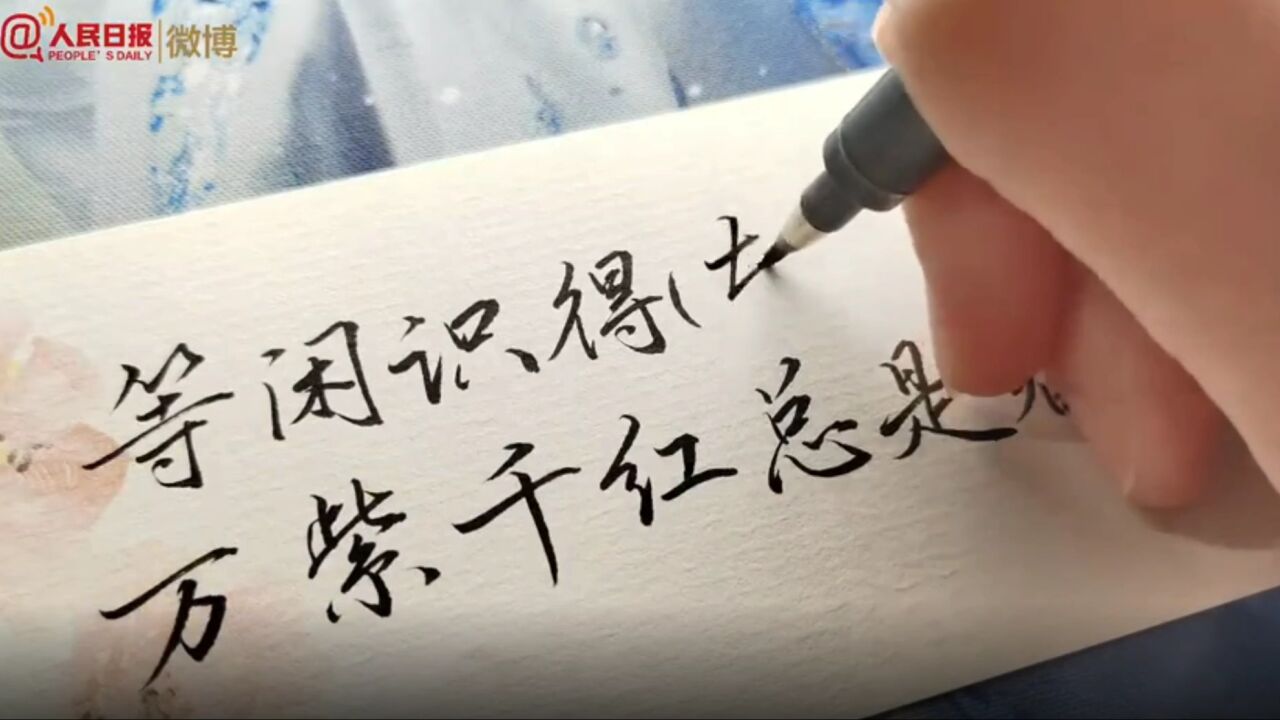 人民日报 微博
PEOPLE'S DAILY
等闲识得
万紫千红总是